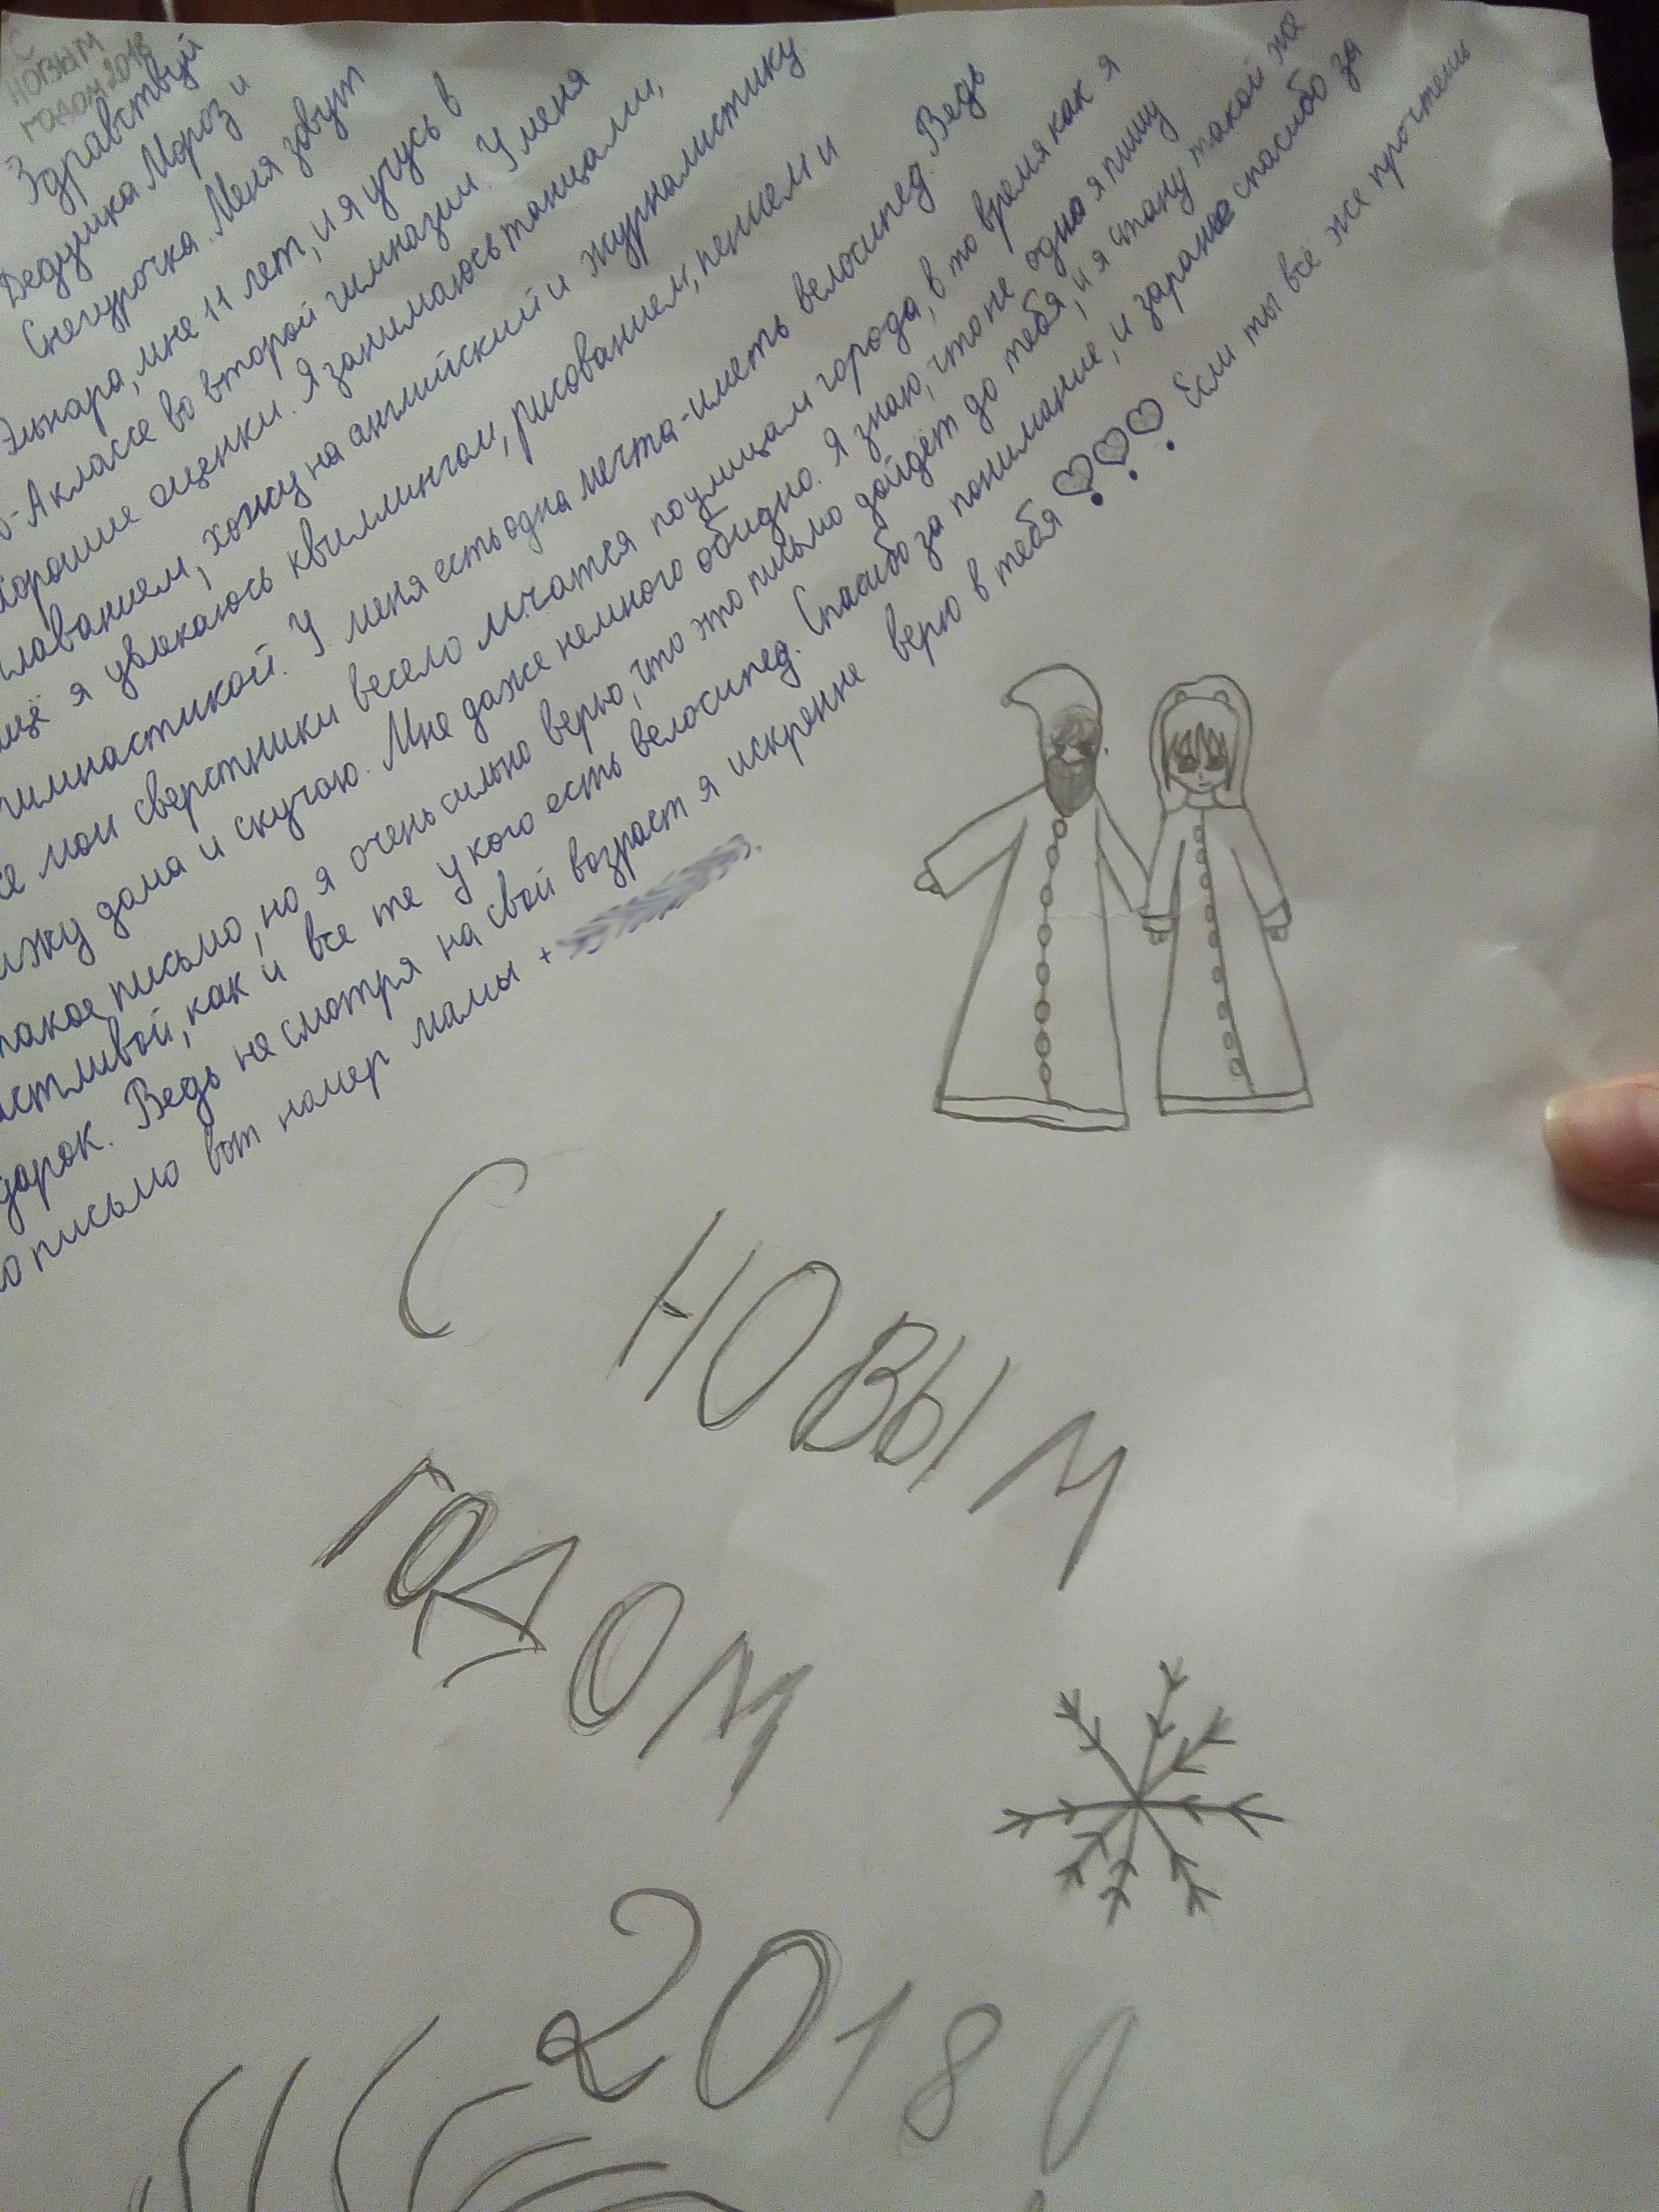 С
НОВЫМ
годом 2018
Здравствуй
Дедушка Мороз и
Снегурочка. Меня зовут
Эльнара, мне 11 лет, и я учусь в
-А классе во второй гимназии. У меня
хорошие оценки. Я занимаюсь танцами,
плаванием, хожу на английский и журналистику.
ещё я увлекаюсь квиллингом, рисованием, пением и
гимнастикой. У меня есть одна мечта-иметь велосипед. Ведь
се мои сверстники весело мчатся по улицам города, в то время как я
ижу дома и скучаю. Мне даже немного обидно. Я знаю, что не одна я пишу
такое письмо, но я очень сильно верю, что это письмо дойдёт до тебя, и я стану такой же
астливой, как и все те у кого есть велосипед. Спасибо за понимание, и заранее спасибо за
дарок. Ведь не смотря на свой возраст я искренне верю в тебя Если ты всё же прочтешь
о письмо вот номер мамы +
С НОВЫМ
ГОДОМ
2018